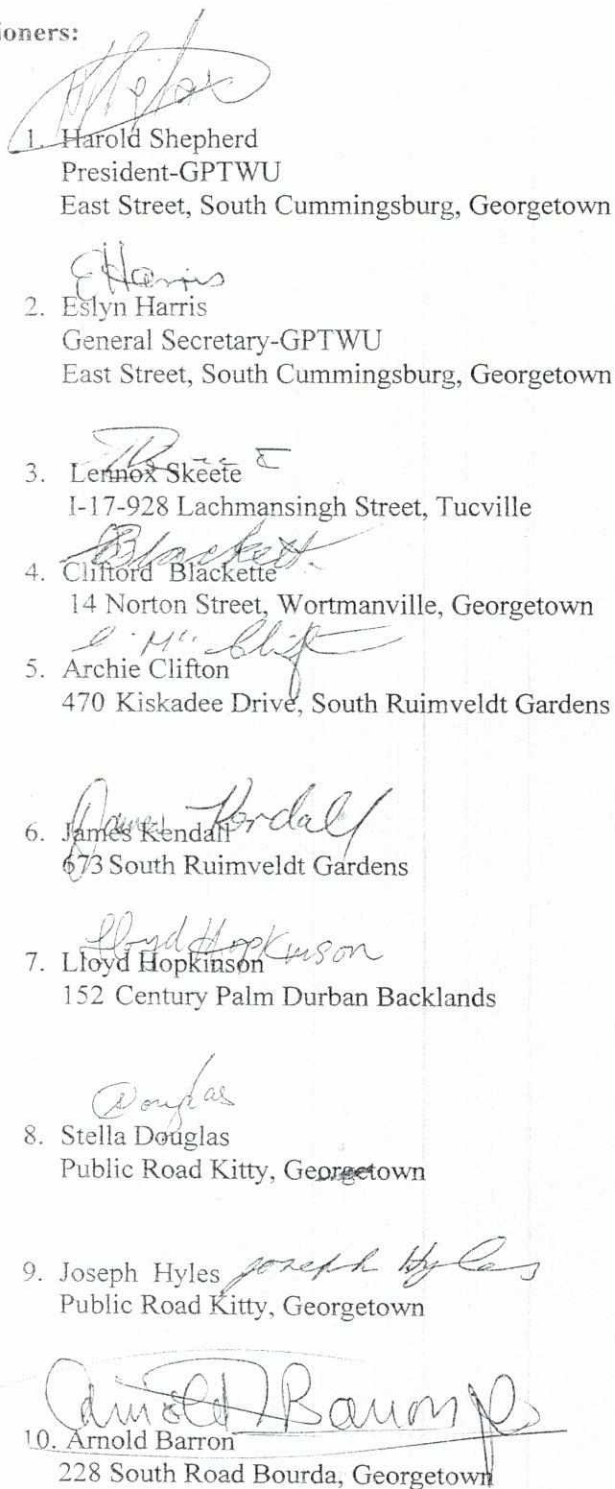 ioners:
1. Harold Shepherd
President-GPTWU
East Street, South Cummingsburg, Georgetown
EHarris
2. Eslyn Harris
General Secretary-GPTWU
East Street, South Cummingsburg, Georgetown
3. Lennox Skeete
I-17-928 Lachmansingh Street, Tucville
Blackett.
4. Clifford Blackette
14 Norton Street, Wortmanville, Georgetown
5. Archie Clifton
470 Kiskadee Drive, South Ruimveldt Gardens
James Kendall
6. James Kendall
673 South Ruimveldt Gardens
Lloyd Hopkinson
7. Lloyd Hopkinson
152 Century Palm Durban Backlands
Douglas
8. Stella Douglas
Public Road Kitty, Georgetown
9. Joseph Hyles Joseph Hyles
Public Road Kitty, Georgetown
Arnold Barron
10. Arnold Barron
228 South Road Bourda, Georgetown